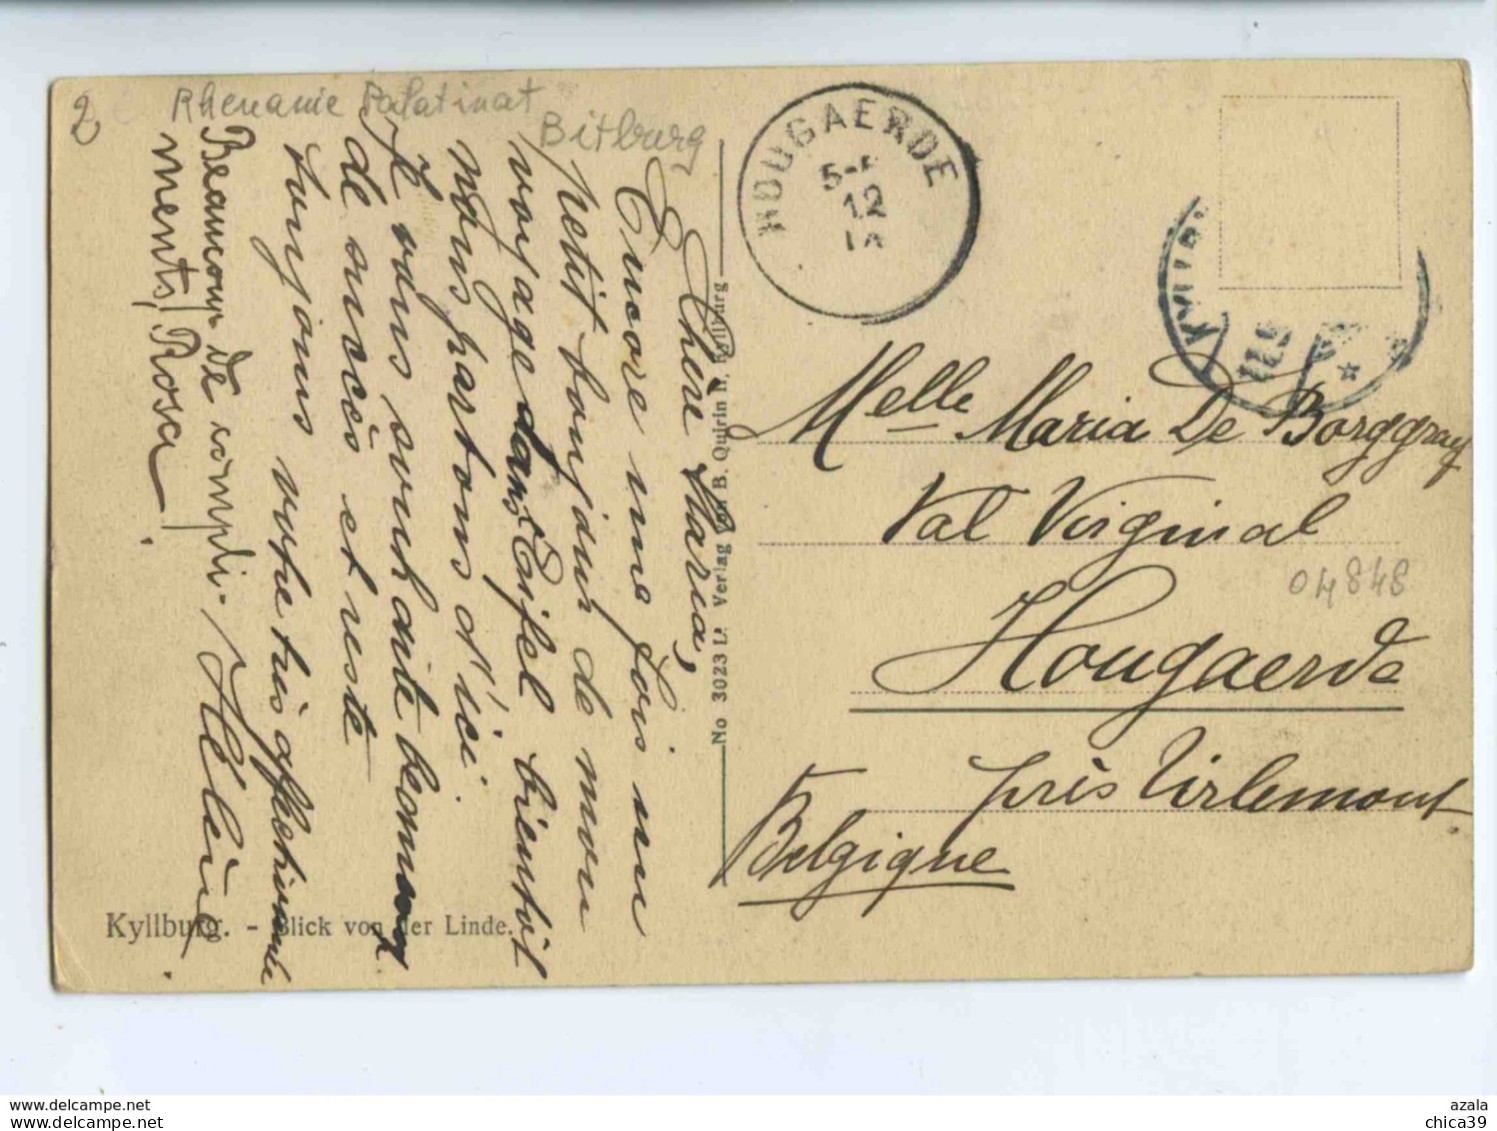 2
Rhenanie Palatinat
Bitburg
Chère Maria,
Encore une fois un
petit bonjour de mon
voyage dans Eifel bientôt
nous partons d'ici.
Je vous souhaite beaucoup
de succès et reste
toujours votre très affectionnée
Hélène.
Beaucoup de compli-
ments, Rosa
Kyllburg. - Blick von der Linde.
No 3023 L. Verlag von B. Quirin II. Kyllburg
HOUGAERDE
5-
12
Melle Maria De Borggraef
Val Virginal
Hougaerde
près Tirlemont
Belgique
04848
www.delcampe.net
www.delcampe.net
azala
chica39